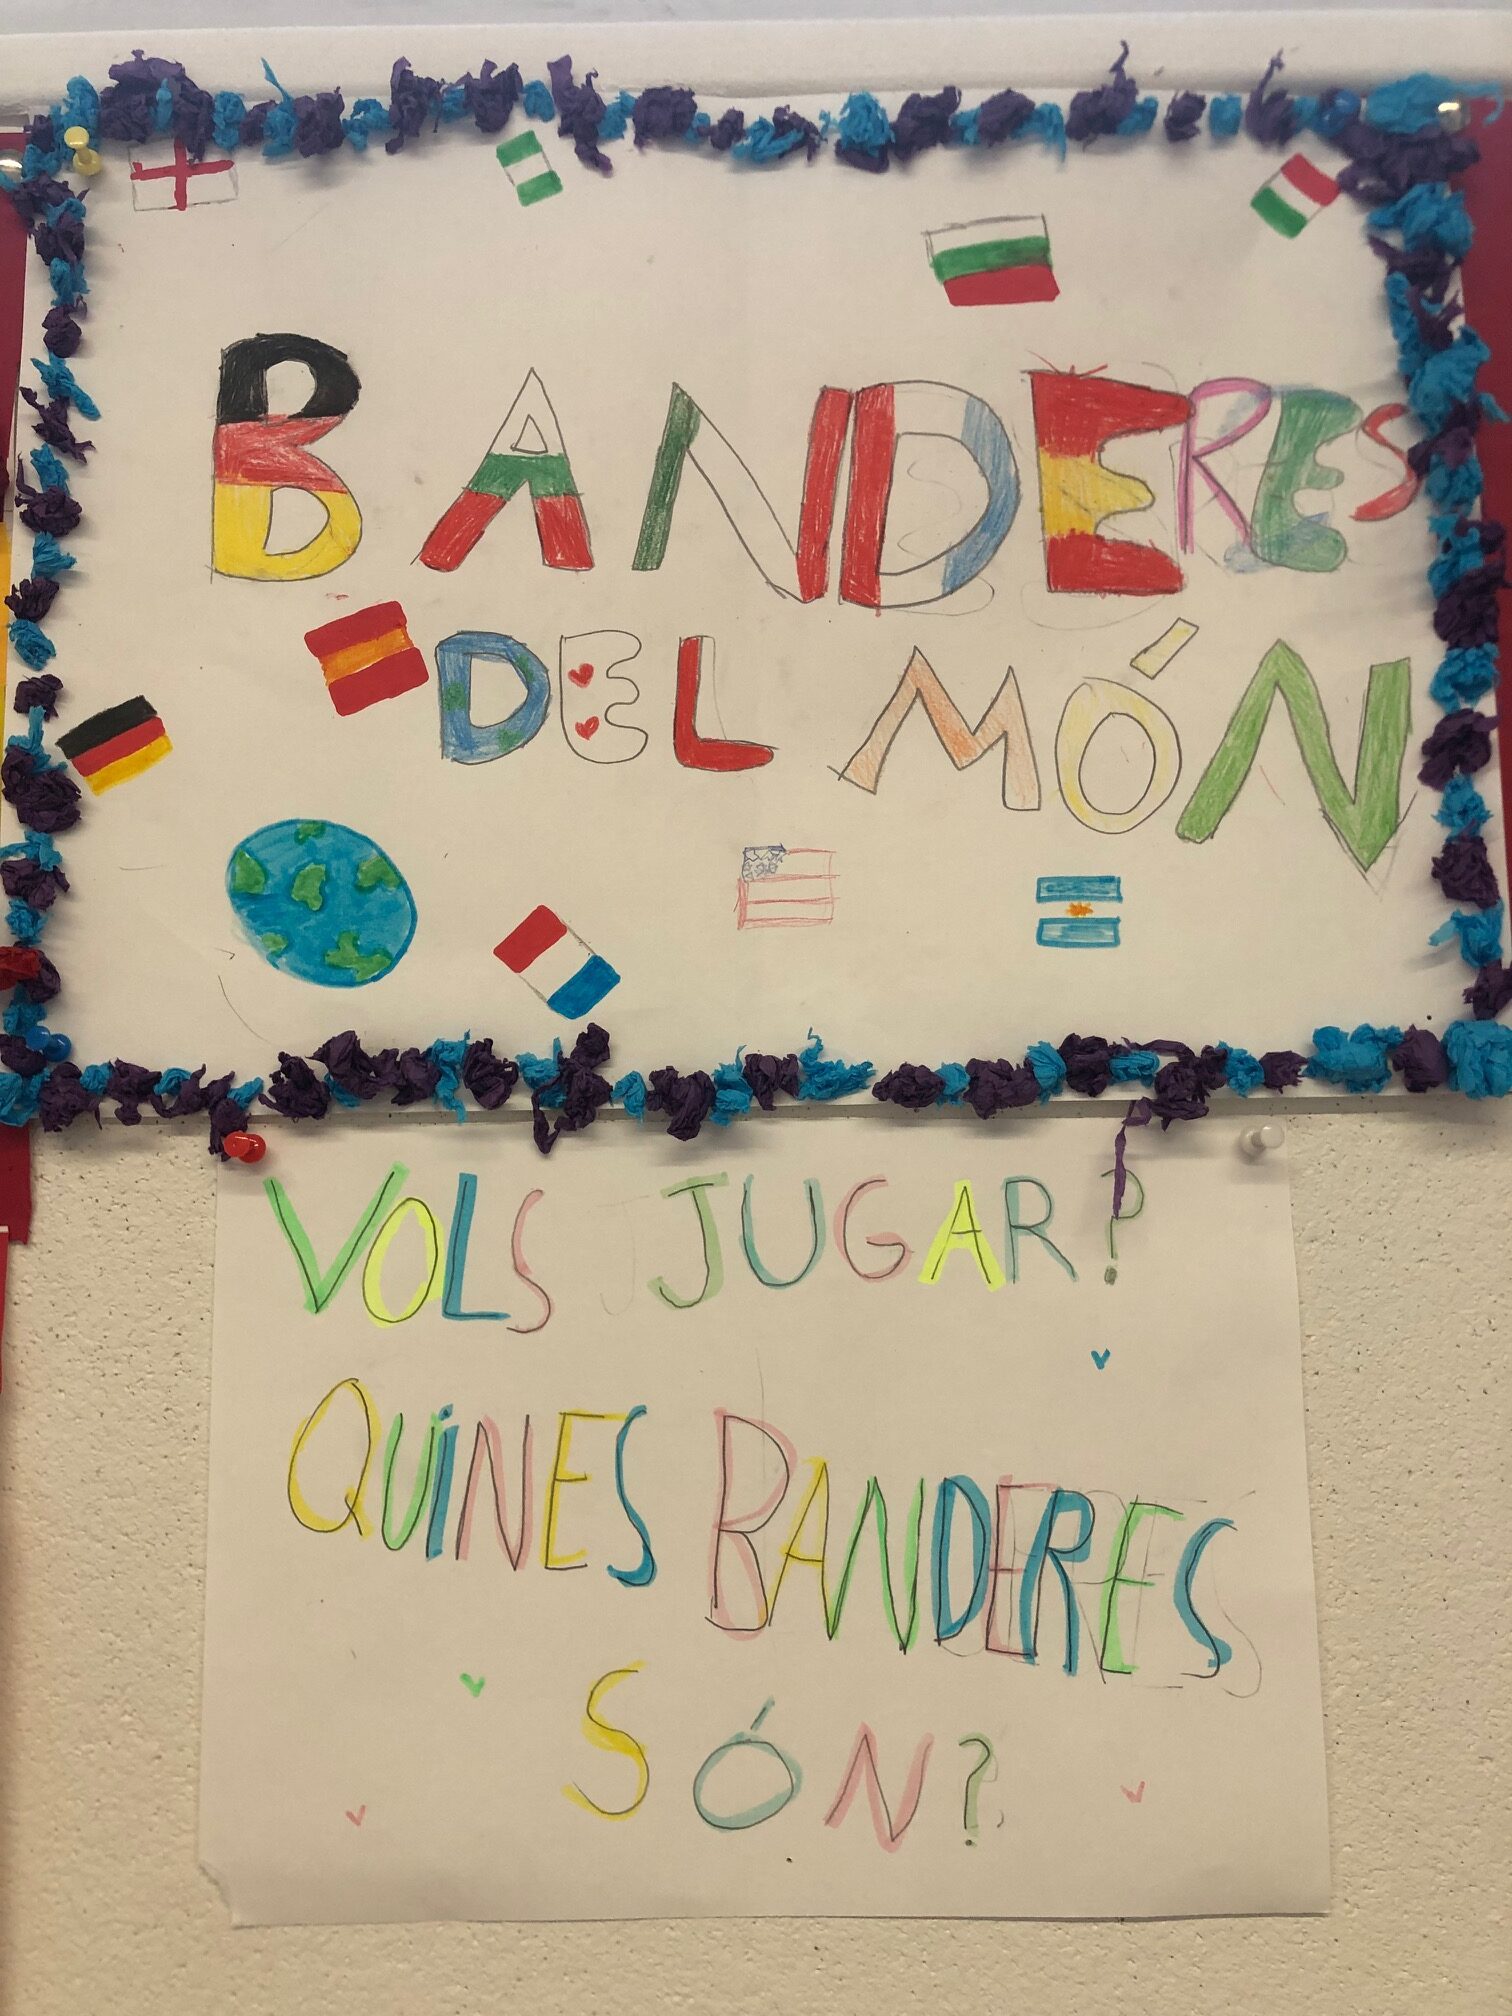 BANDERES
DEL MÓN
VOLS JUGAR?
QUINES BANDERES
SÓN?